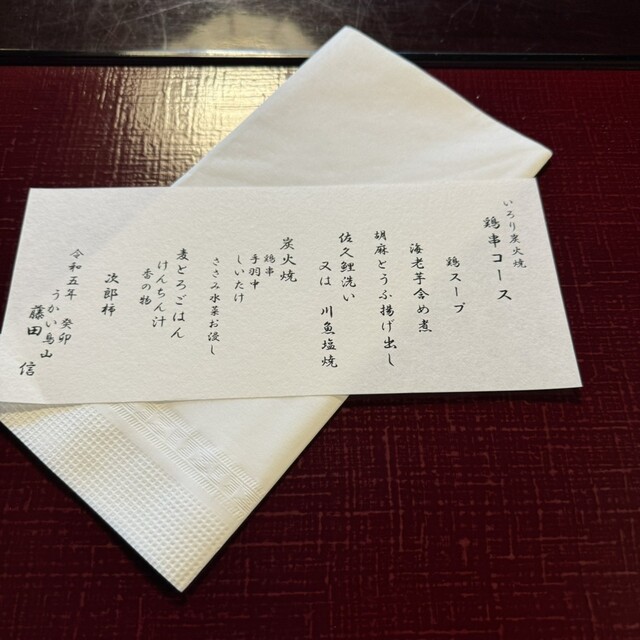 いろり炭火焼
鶏串コース
鶏スープ
海老芋含め煮
胡麻とうふ揚げ出し
佐久鯉洗い
又は 川魚塩焼
炭火焼
鶏串
手羽中
しいたけ
ささみ水菜お浸し
麦とろごはん
けんちん汁
香の物
次郎柿
令和五年 癸卯
うかい鳥山
藤田 信